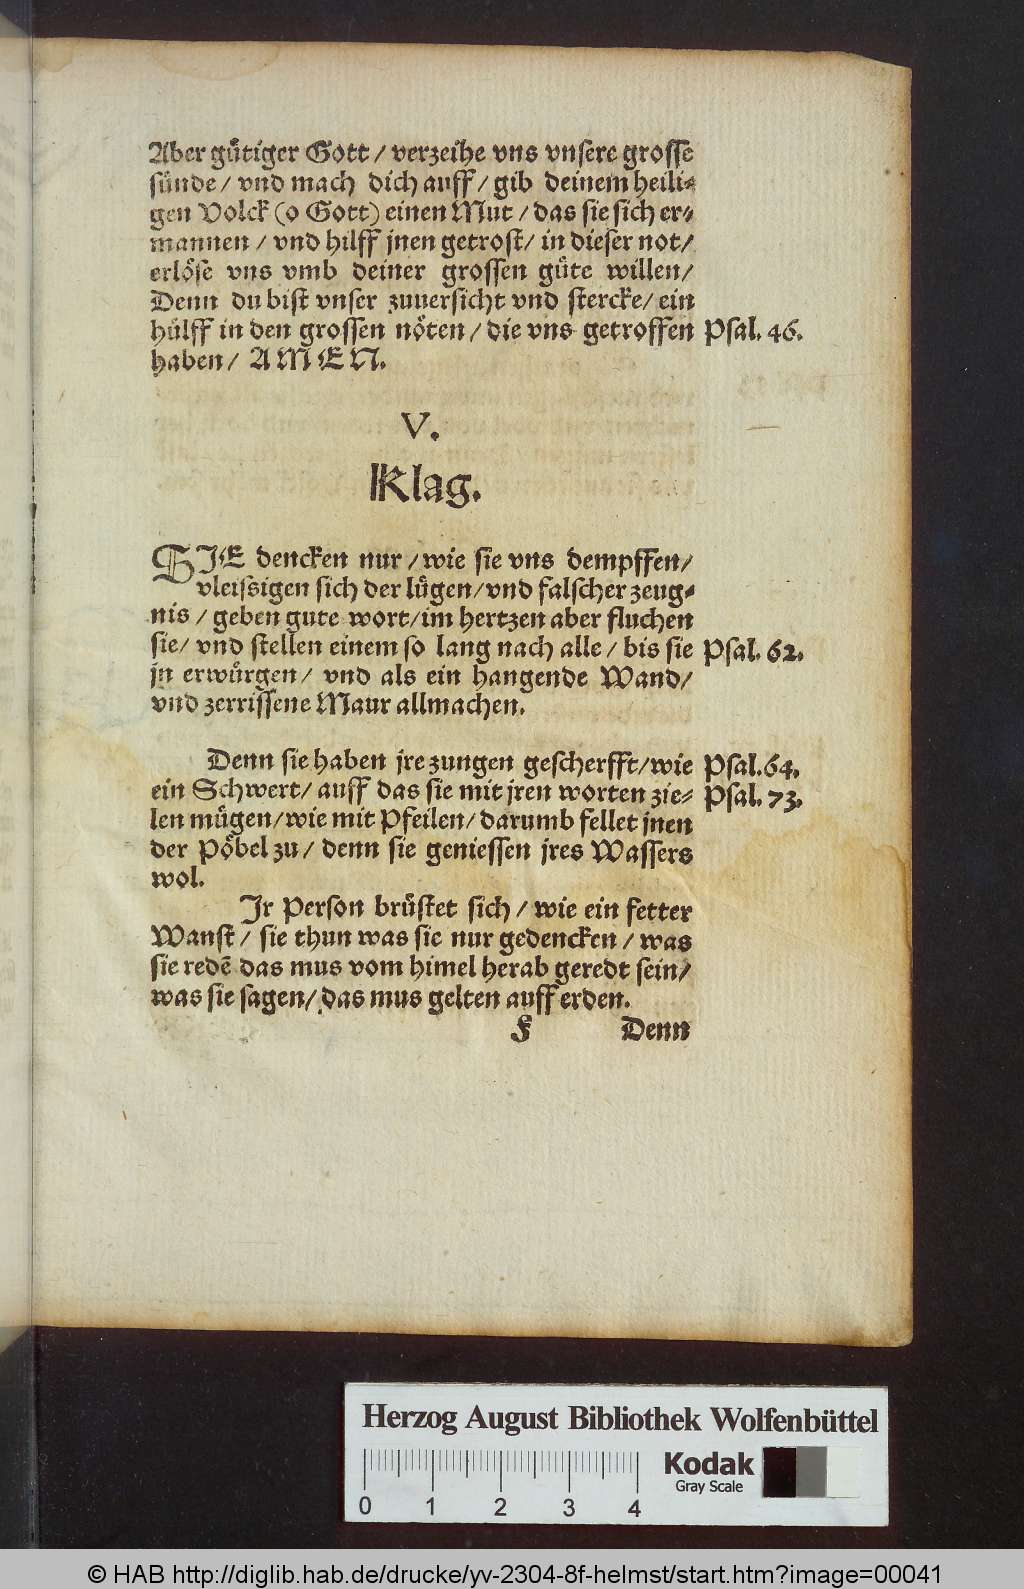 Aber gütiger Gott / verzeihe vns vnsere grosse
sünde / vnd mach dich auff / gib deinem heili-
gen Volck (o Gott) einen Mut / das sie sich er-
mannen / vnd hilff jnen getrost / in dieser not /
erlöse vns vmb deiner grossen güte willen /
Denn du bist vnser zuuersicht vnd stercke / ein
hülff in den grossen nöten / die vns getroffen Psal. 46.
haben / AMEN.
V.
Klag.
SIE dencken nur / wie sie vns dempffen /
vleissigen sich der lügen / vnd falscher zeug-
nis / geben gute wort / im hertzen aber fluchen
sie / vnd stellen einem so lang nach alle / bis sie Psal. 62.
jn erwürgen / vnd als ein hangende Wand /
vnd zerrissene Maur allmachen.
Denn sie haben jre zungen gescherfft / wie Psal. 64.
ein Schwert / auff das sie mit jren worten zie- Psal. 73.
len mügen / wie mit Pfeilen / darumb fellet jnen
der Pöbel zu / denn sie geniessen jres Wassers
wol.
Jr Person brüstet sich / wie ein fetter
Wanst / sie thun was sie nur gedencken / was
sie redē das mus vom himel herab geredt sein /
was sie sagen / das mus gelten auff erden.
F Denn
Herzog August Bibliothek Wolfenbüttel
Kodak
Gray Scale
0 1 2 3 4
© HAB http://diglib.hab.de/drucke/yv-2304-8f-helmst/start.htm?image=00041